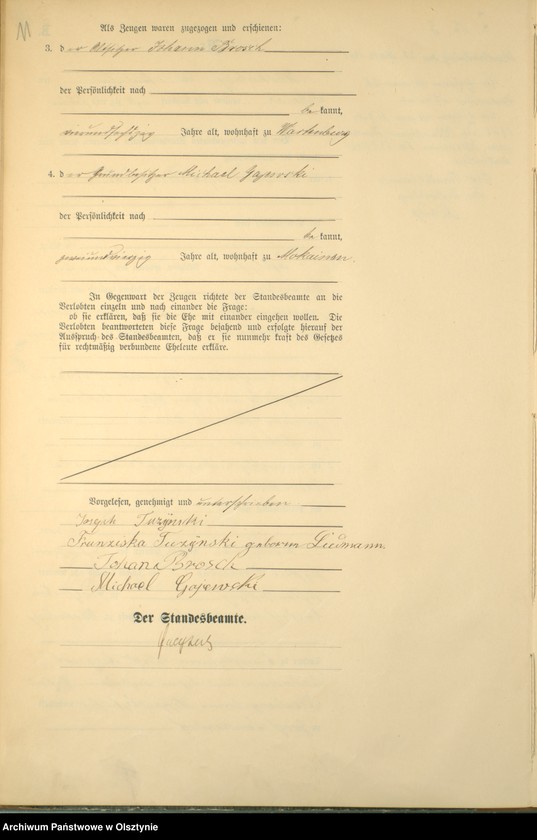 Als Zeugen waren zugezogen und erschienen:
3. der Besitzer Johann Brosch
der Persönlichkeit nach
be kannt,
Jahre alt, wohnhaft zu Wartenburg
4. der Grundbesitzer Michael Gajewski
der Persönlichkeit nach
be kannt,
Jahre alt, wohnhaft zu Mokainen.
In Gegenwart der Zeugen richtete der Standesbeamte an die
Verlobten einzeln und nach einander die Frage:
ob sie erklären, daß sie die Ehe mit einander eingehen wollen. Die
Verlobten beantworteten diese Frage bejahend und erfolgte hierauf der
Ausspruch des Standesbeamten, daß er sie nunmehr kraft des Gesetzes
für rechtmäßig verbundene Eheleute erkläre.
Vorgelesen, genehmigt und unterschrieben
Joseph Tuzynski
Franziska Tuzynski geborene Liedmann.
Johann Brosch
Michael Gajewski
Der Standesbeamte.
Archiwum Państwowe w Olsztynie